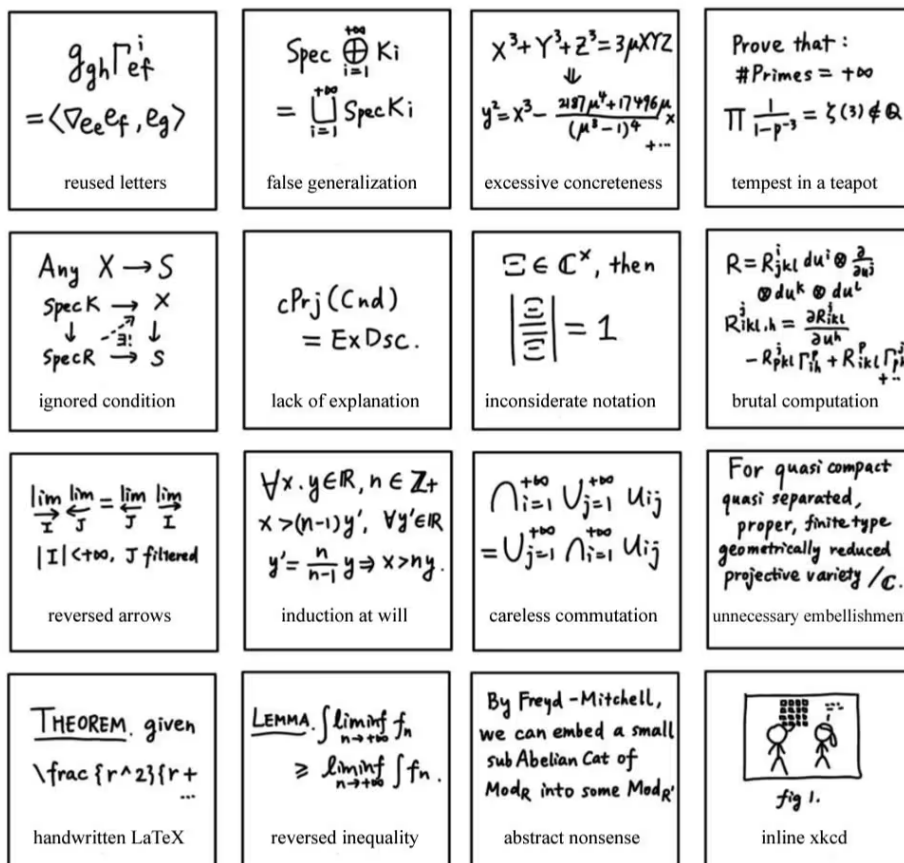 g_{gh}Γ^i_{ef}
=⟨∇_{e_e}e_f, e_g⟩
reused letters
Spec ⊕_{i=1}^{+∞} Ki
= ⨆_{i=1}^{+∞} SpecKi
false generalization
X³+Y³+Z³=3μXYZ
⇓
y²=x³-\frac{2187μ⁴+17496μ}{(μ³-1)⁴}x
+...
excessive concreteness
Prove that:
#Primes = +∞
∏ \frac{1}{1-p^{-3}} = ζ(3)∉Q
tempest in a teapot
Any X → S
SpecK → X
↓ ∃! ↓
SpecR → S
ignored condition
cPrj(Cnd)
= ExDsc.
lack of explanation
Ξ ∈ ℂ^×, then
|\frac{Ξ}{\overline{Ξ}}| = 1
inconsiderate notation
R = R^j_{ikl} du^i ⊗ \frac{∂}{∂u^j}
⊗ du^k ⊗ du^l
R^j_{ikl,h} = \frac{∂R^j_{ikl}}{∂u^h}
- R^j_{pkl}Γ^p_{ih} + R^p_{ikl}Γ^j_{ph}
+...
brutal computation
lim_{→I} lim_{←J} = lim_{←J} lim_{→I}
|I|<+∞, J filtered
reversed arrows
∀x.y∈ℝ, n∈ℤ+
x>(n-1)y', ∀y'∈ℝ
y'=\frac{n}{n-1}y ⇒ x>ny.
induction at will
⋂_{i=1}^{+∞} ⋃_{j=1}^{+∞} Uij
= ⋃_{j=1}^{+∞} ⋂_{i=1}^{+∞} Uij
careless commutation
For quasi compact
quasi separated,
proper, finite type
geometrically reduced
projective variety /ℂ.
unnecessary embellishment
THEOREM. given
\frac{r^2}{r+
...
handwritten LaTeX
LEMMA. ∫ liminf_{n→+∞} fn
≥ liminf_{n→+∞} ∫fn.
reversed inequality
By Freyd-Mitchell,
we can embed a small
sub Abelian Cat of
Mod_R into some Mod_R'
abstract nonsense
fig 1.
inline xkcd